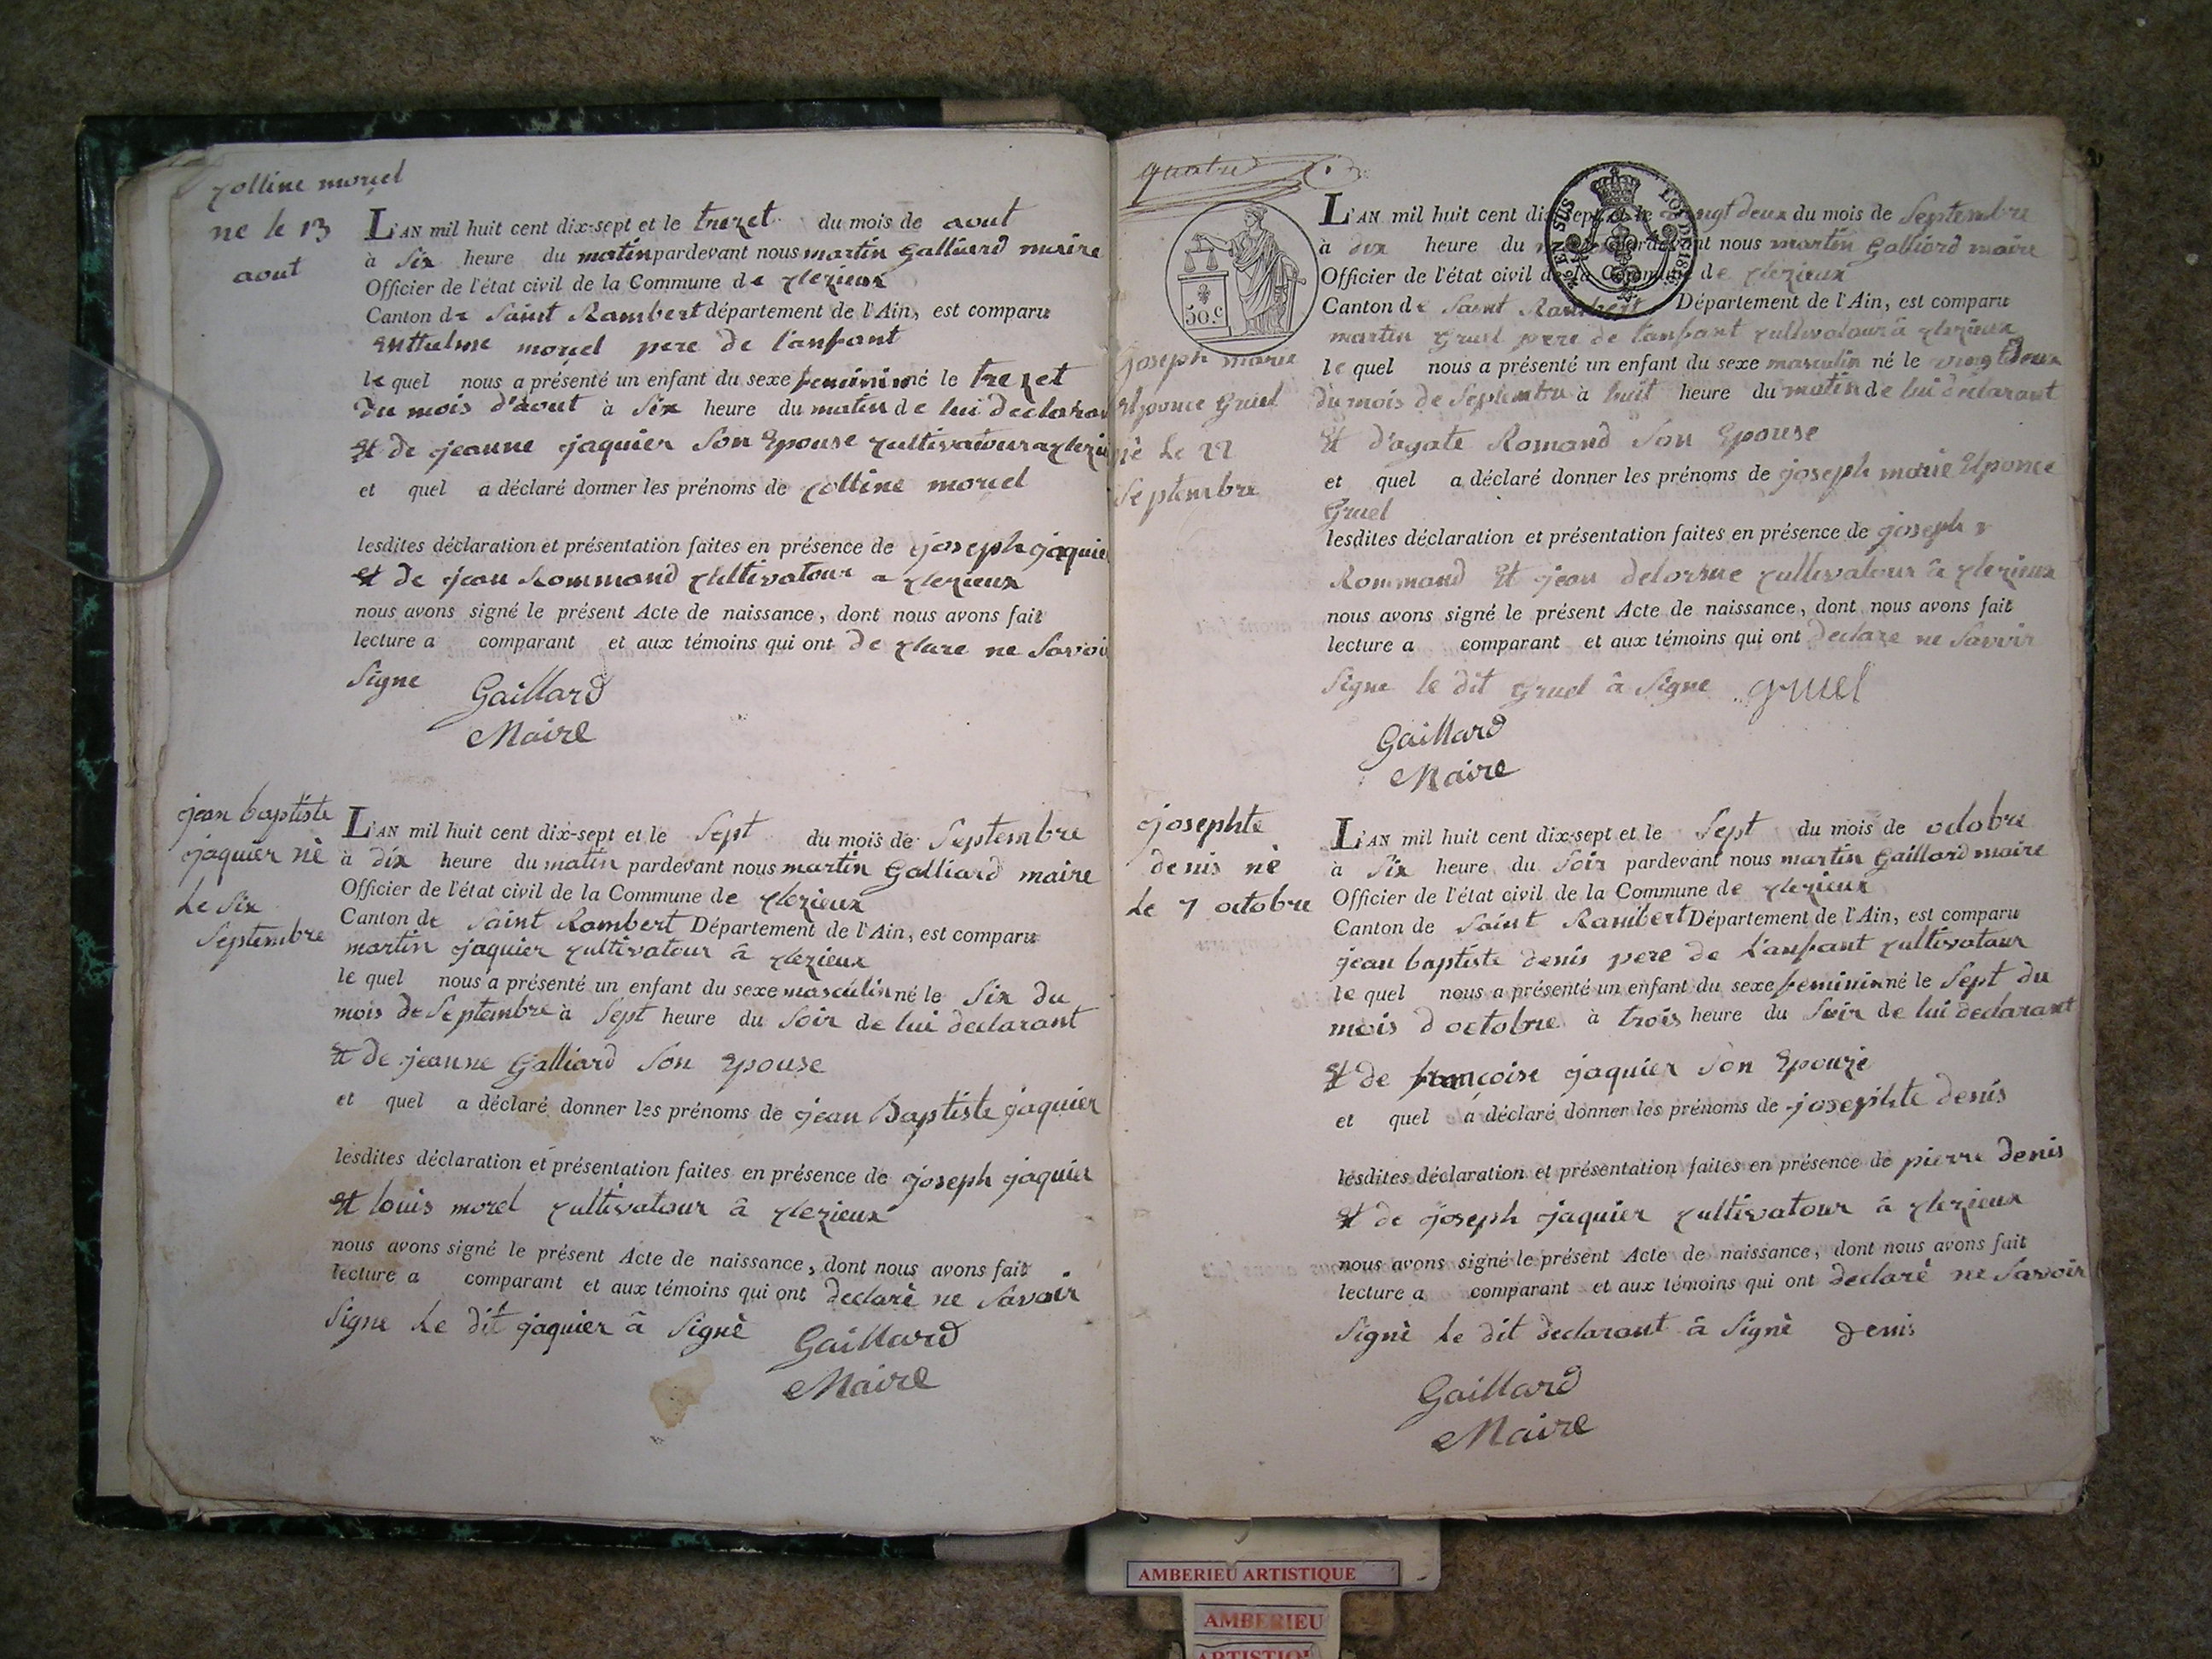 Colline morel
ne le 13
aout
L'AN mil huit cent dix-sept et le trezet du mois de aout
à Six heure du matin pardevant nous martin Galliard maire
Officier de l'état civil de la Commune de Clezieux
Canton de Saint Rambert département de l'Ain, est comparu
Enttulme morel pere de l'anfant
le quel nous a présenté un enfant du sexe feminin né le trezet
du mois d'aout à Six heure du matin de lui declaran
Et de jeanne jaquier Son Epouse Cultivatour a Clezieu
et quel a déclaré donner les prénoms de Colline morel
lesdites déclaration et présentation faites en présence de joseph jaquier
Et de jean Rommand Cultivatour a Clezieux
nous avons signé le présent Acte de naissance, dont nous avons fait
lecture a comparant et aux témoins qui ont de Clare ne Savoir
Signe
Gaillard
Maire
jean baptiste
jaquier nè
Le Six
Septembre
L'AN mil huit cent dix-sept et le Sept du mois de Septembre
à dix heure du matin pardevant nous martin Galliard maire
Officier de l'état civil de la Commune de Clezieux
Canton de Saint Rambert Département de l'Ain, est comparu
martin jaquier Cultivatour â Clezieux
le quel nous a présenté un enfant du sexe masculin né le Six du
mois de Septembre à Sept heure du Soir de lui declarant
Et de jeanne Galliard Son Epouse
et quel a déclaré donner les prénoms de jean Baptiste jaquier
lesdites déclaration et présentation faites en présence de joseph jaquier
Et louis morel Cultivatour â Clezieux
nous avons signé le présent Acte de naissance, dont nous avons fait
lecture a comparant et aux témoins qui ont declarè ne Savoir
Signe Le dit jaquier â Signè
Gaillard
Maire
quatre
50.c
EN SUS
LOI DE 1816
joseph marie
Elponce Gruel
nè Le 22
Septembre
L'AN mil huit cent dix-sept et le vingt deux du mois de Septembre
à dix heure du pardevant nous martin Galliard maire
Officier de l'état civil de la Commune de Clezieux
Canton de Saint Rambert Département de l'Ain, est comparu
martin Gruel pere de l'anfant Cultivatour â Clezieux
le quel nous a présenté un enfant du sexe masculin né le vingt deux
du mois de Septembre à huit heure du matin de lui declarant
Et d'agate Romand Son Epouse
et quel a déclaré donner les prénoms de joseph marie Elponce
Gruel
lesdites déclaration et présentation faites en présence de joseph
Rommand Et jean delorme Cultivatour â Clezieux
nous avons signé le présent Acte de naissance, dont nous avons fait
lecture a comparant et aux témoins qui ont declare ne Savoir
Signe le dit Gruel â Signe gruel
Gaillard
Maire
josephte
denis nè
Le 7 octobre
L'AN mil huit cent dix-sept et le Sept du mois de octobre
à Six heure du Soir pardevant nous martin Gaillard maire
Officier de l'état civil de la Commune de Clezieux
Canton de Saint Rambert Département de l'Ain, est comparu
jean baptiste denis pere de L'anfant Cultivatour
le quel nous a présenté un enfant du sexe feminin né le Sept du
mois d octobre à trois heure du Soir de lui declarant
Et de françoise jaquier Son Epouze
et quel a déclaré donner les prénoms de josephte denis
lesdites déclaration et présentation faites en présence de pierre denis
Et de joseph jaquier Cultivatour â Clezieux
nous avons signé le présent Acte de naissance, dont nous avons fait
lecture a comparant et aux témoins qui ont declarè ne Savoir
Signè Le dit declarant â Signè denis
Gaillard
Maire
AMBERIEU ARTISTIQUE
AMBERIEU
ARTISTIQUE